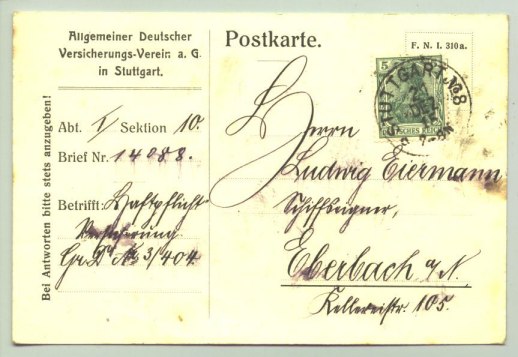 Allgemeiner Deutscher
Versicherungs-Verein a. G.
in Stuttgart.
Bei Antworten bitte stets anzugeben!
Abt. I Sektion 10.
Brief Nr. 14088.
Betrifft: Haftpflicht
Versicherung
Gr. D No 3/404
Postkarte.
F. N. I. 310a.
5
DEUTSCHES REICH
STUTTGART No 8
Herrn
Ludwig Eiermann
Schiffseigner,
Eberbach a/N.
Kellereistr. 105.